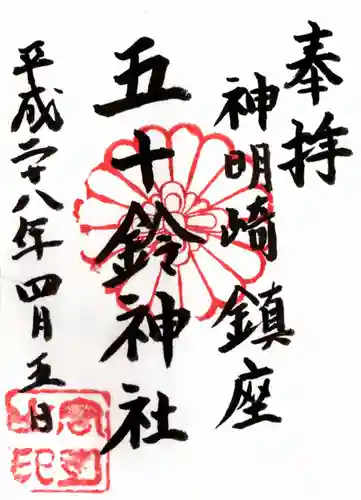 奉拝
神明崎鎮座
五十鈴神社
平成二十八年四月五日
宮司之印